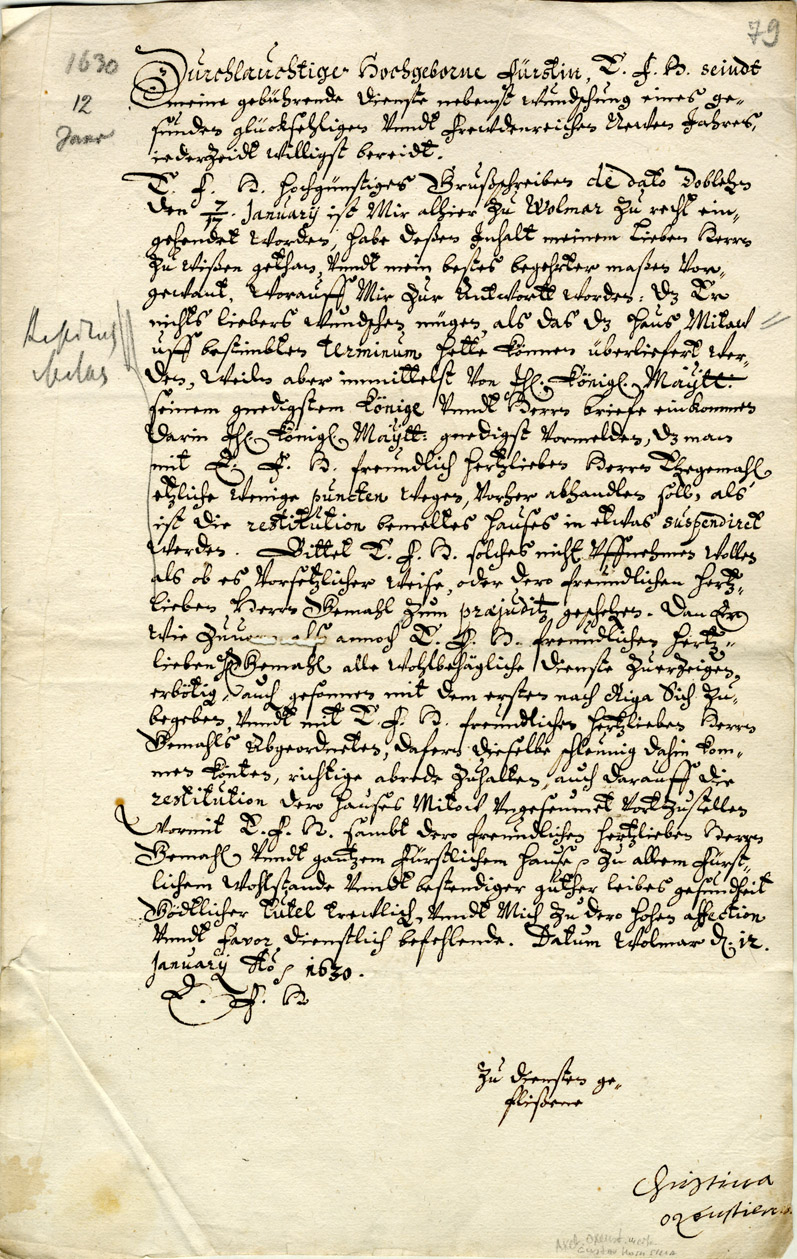 79
1630
12
Janr
Durchlauchtige Hochgeborne Fürstin, E. F. G. seindt
meine gebührende dienste nebenst wündschung eines ge-
sunden glückseligen Vnndt frewdenreichen Newen Jahres,
iederZeidt willigst bereidt.
E. F. G. hochgünstiges Grußschreiben de dato Doblehn
den 7/17. January ist Mir alhier Zu Wolmar Zu recht ein-
gehendet worden, habe deßen Inhalt meinem lieben Herrn
Zu wißen gethan, Vnndt mein bestes begehrter maßen Vor-
gewant, Worauff Mir Zur Antwortt worden: dz Er
nichts liebers wündschen mügen, als das dz Haus Mitow
uff bestimbten terminum hette können überliefert wer-
den, Weiln aber immittelst Von Ihr. Königl. Maÿtt:
seinem gnedigstem Könige Vnndt Herrn briefe einkommen
darin Ihr Königl Maÿtt: gnedigst Vormelden, dz man
mit E. F. G. freundlich hertzlieben Herrn Ehegemahl
etzliche wenige puncten wegen, Vorher abhandlen soll, als
ist die restitution bemeltes Hauses in etwas suspendiret
worden. Bittet E. F. G. solches nicht Vffnehmen wollen
als ob es Vorsetzlicher weise, oder dero freundlichen hertz-
lieben Herrn Gemahl Zum præjuditz geschehen. Dan Er
wie Zuuorn also annoch E. F. G. freundlichen hertz-
lieben H Gemahl alle wohlbehägliche dienste Zuerzeigen,
erbötig, auch gesonnen mit dem ersten nach Riga Sich Zu-
begeben, Vnndt mit E. F. G. freundlichen hertzlieben Herrn
Gemahls Abgeordneten, dafern dieselbe schleunig dahin kom-
men könten, richtige abrede Zuhalten, auch darauff die
restitution dero Hauses Mitow Vngeseumet Vortzustellen
Wormit E. F. G. sambt dero freundlichen hertzlieben Herrn
Gemahl Vnndt gantzem Fürstlichem Hause, Zu allem Fürst-
lichem Wohlstande Vnndt bestendiger guther leibes gesundheit
Göttlicher tutel trewlich, Vnndt Mich Zu dero hohen affection
Vnndt favor dienstlich befehlende. Datum Wolmar d. 12.
January Ao 1630.
E. F. G
Zu diensten ge-
flißene
Christina
oxenstiern